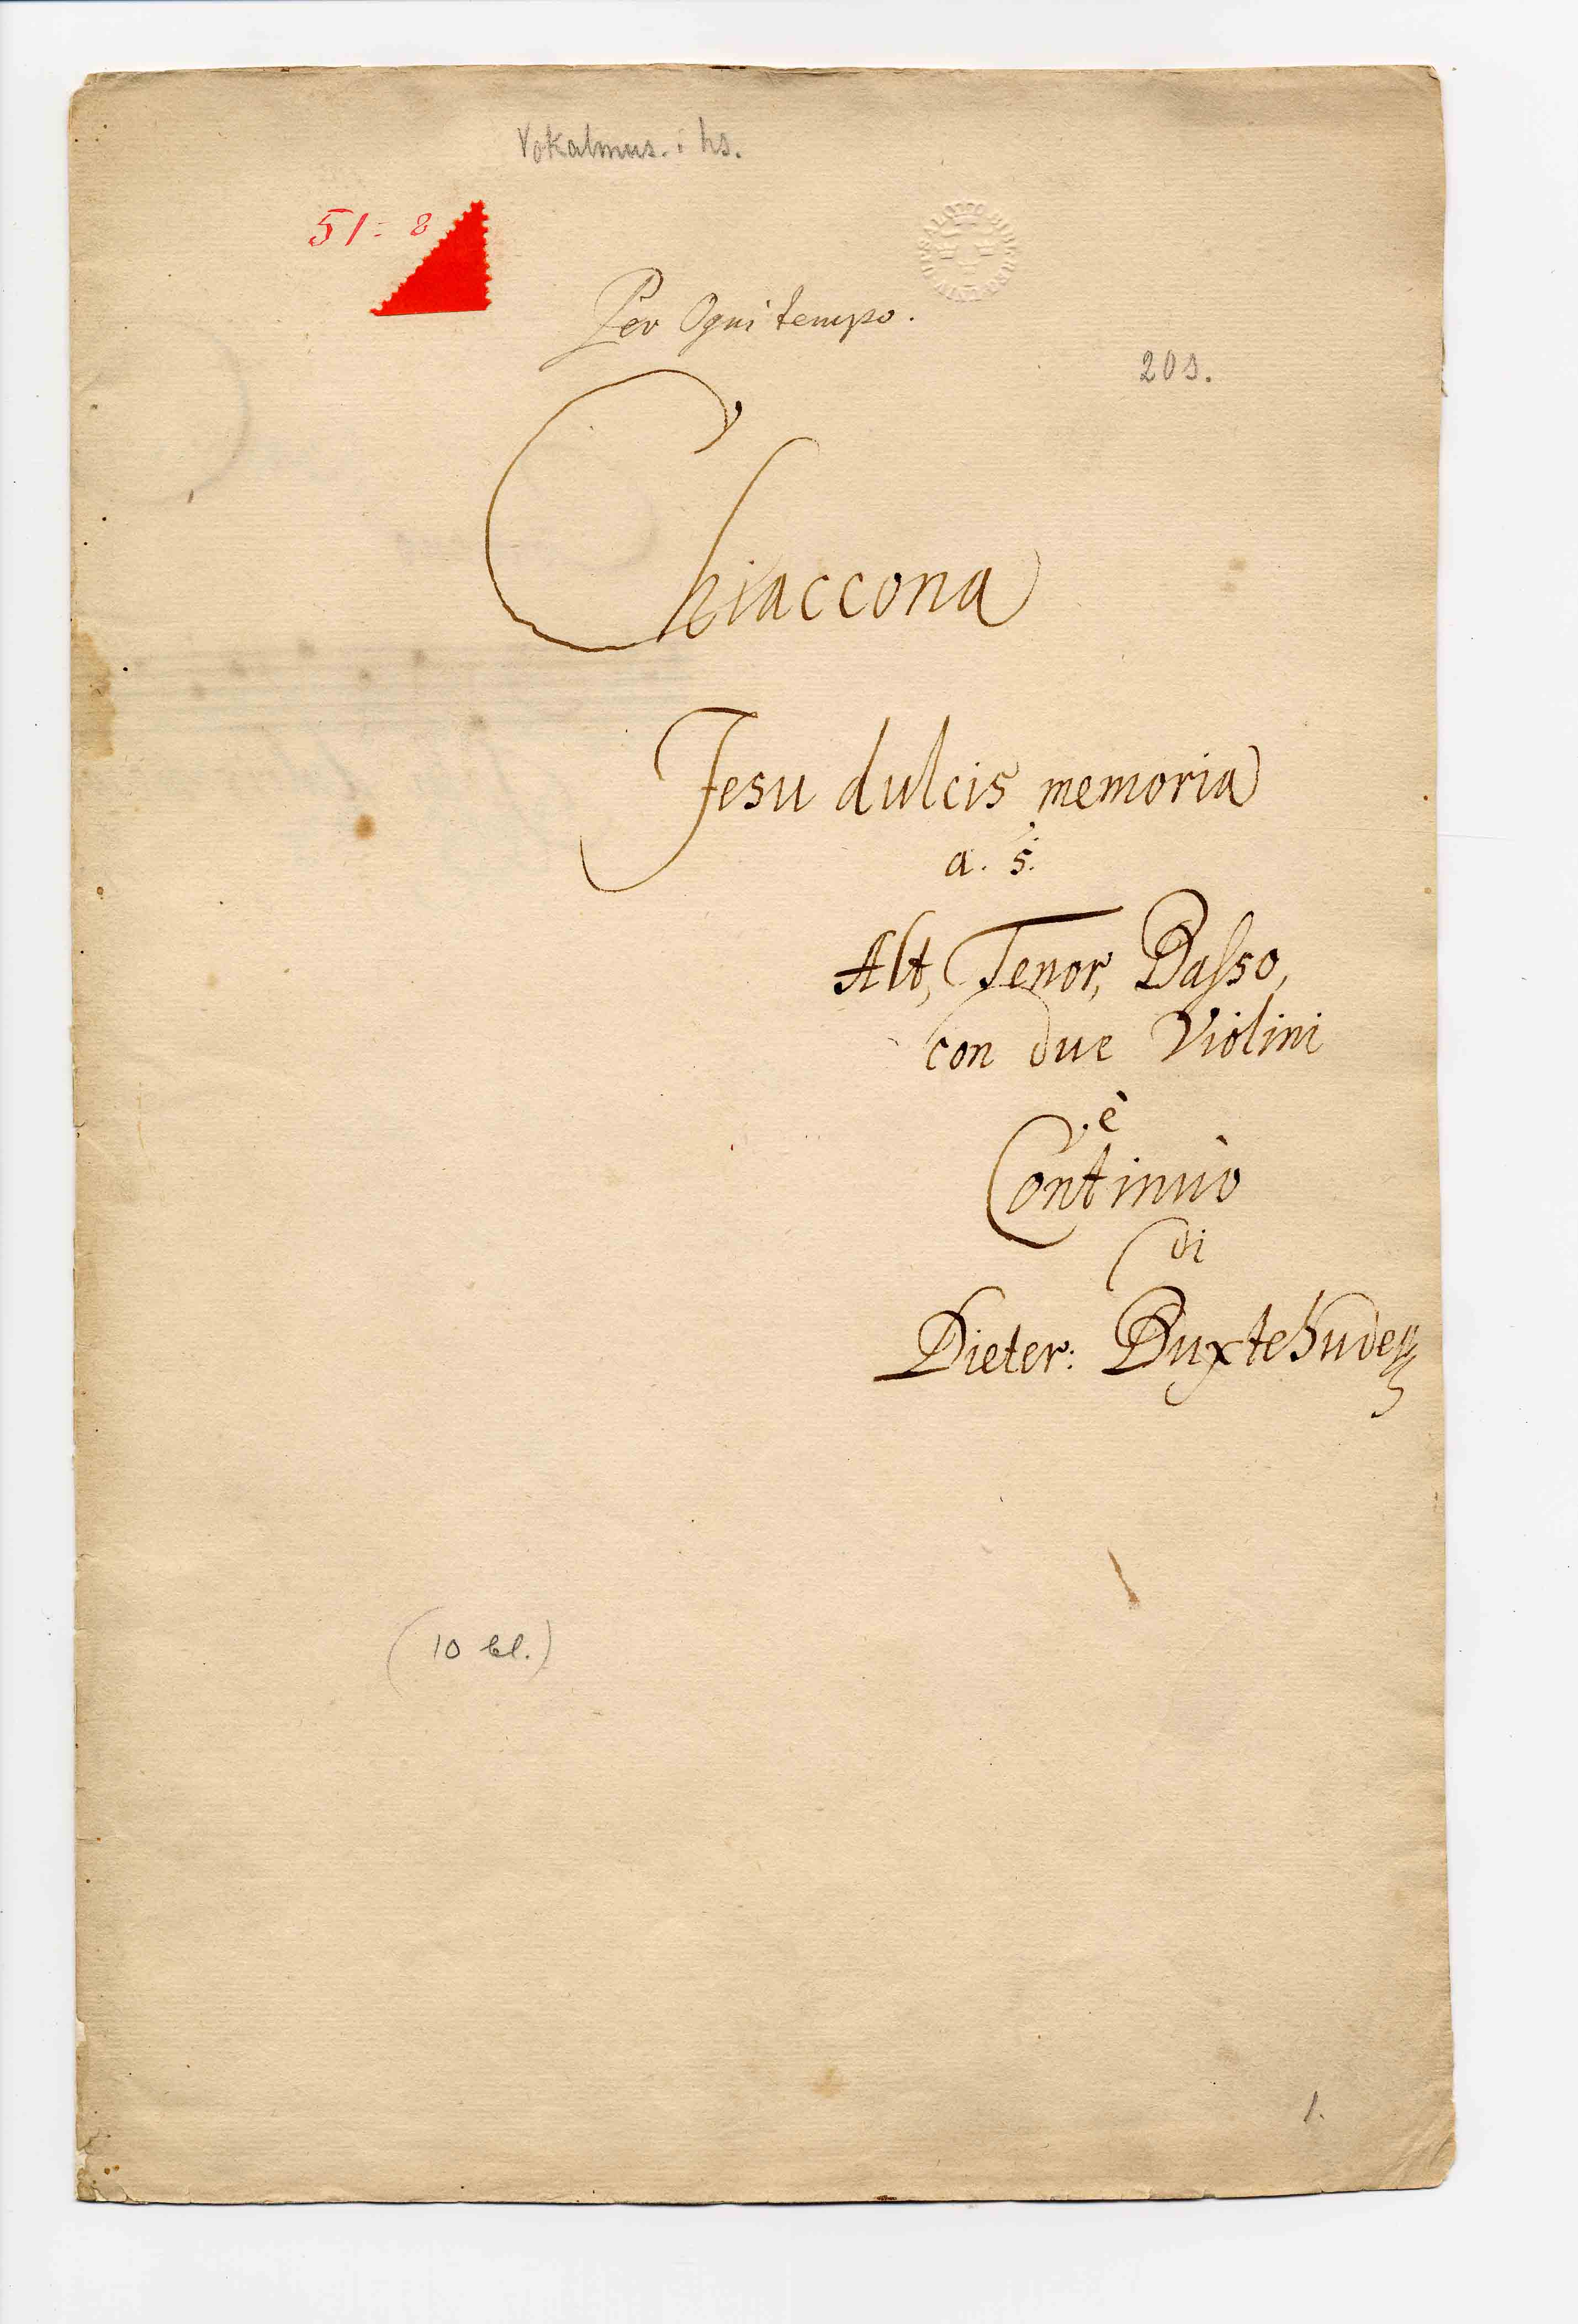 Vokalmus. i hs.
51: 8
Per Ogni tempo.
209.
Chiaccona
Jesu dulcis memoria
a. 5.
Alt, Tenor, Baſso,
con due Violini
è
Continuo
di
Dieter: Buxtehude
(10 bl.)
1.